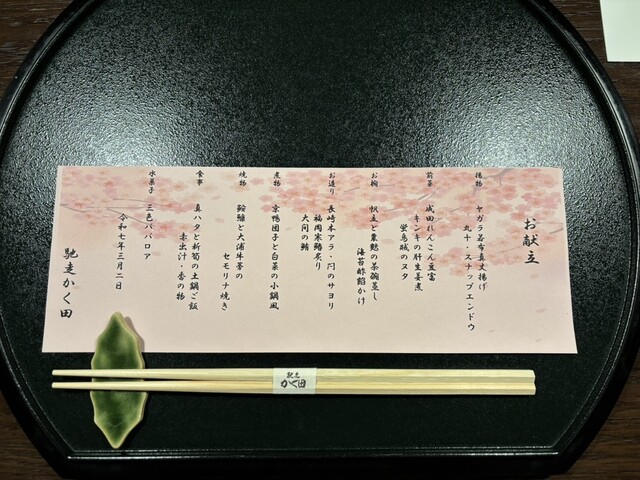 お献立
揚物 ヤガラ若布真丈揚げ
丸十・スナップエンドウ
前菜 成田れんこん豆富
キンキの肝生姜煮
蛍烏賊のヌタ
お椀 帆立と粟麩の茶碗蒸し
海苔酢餡かけ
お造り 長崎本アラ・閂のサヨリ
福岡寒鰆炙り
大間の鮪
煮物 京鴨団子と白菜の小鍋風
焼物 鮟鱇と大浦牛蒡の
セモリナ焼き
食事 真ハタと筍の土鍋ご飯
赤出汁・香の物
水菓子 三色ババロア
令和七年三月二日
馳走かく田
馳走
かく田